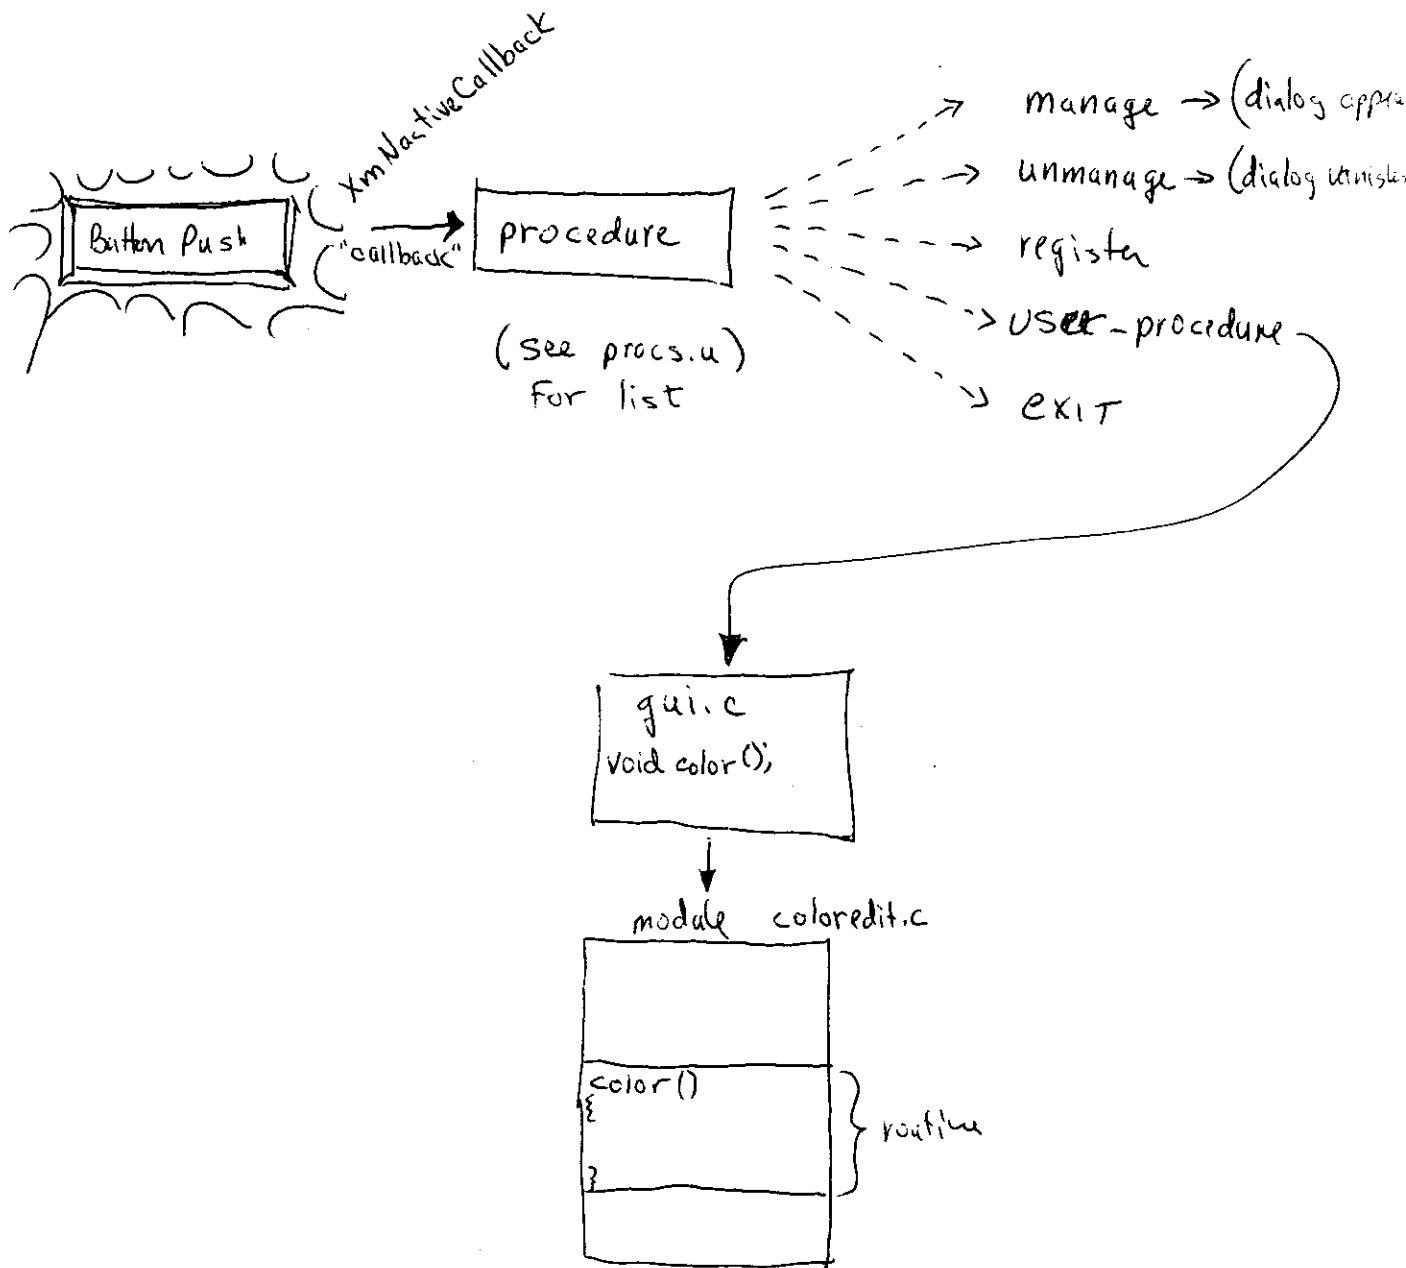 XmNactiveCallback
Button Push
"callback"
procedure
(see procs.u)
For list
manage → (dialog
unmanage → (dialog
register
user-procedure
EXIT
gui.c
void color();
module coloredit.c
color()
{
}
routine